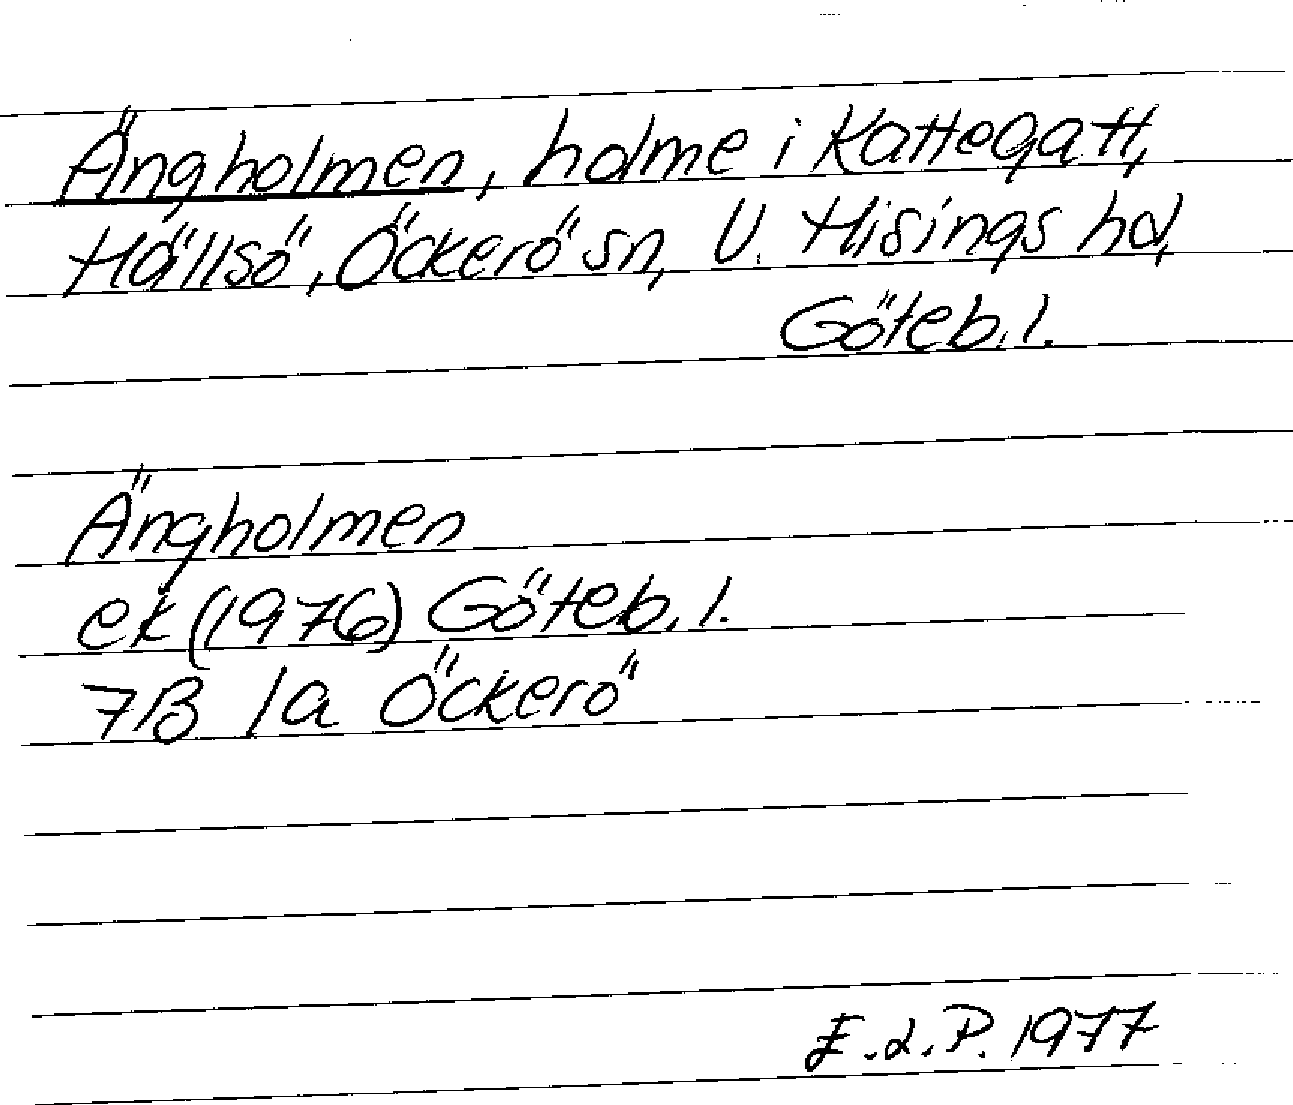 Ängholmen, holme i Kattegatt,
Hällsö, Öckerö sn, V. Hisings hd,
Göteb. l.
Ängholmen
ek (1976) Göteb. l.
7B 1a Öckerö
E.d.P. 1977